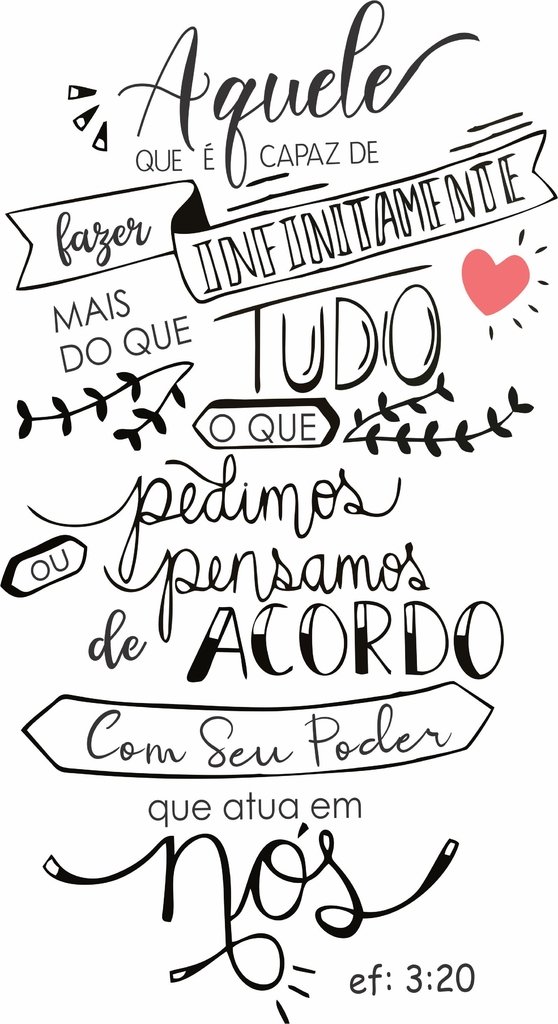 Aquele
QUE É CAPAZ DE
fazer INFINITAMENTE
MAIS
DO QUE TUDO
O QUE
pedimos
OU pensamos
de ACORDO
Com Seu Poder
que atua em
nós
ef: 3:20